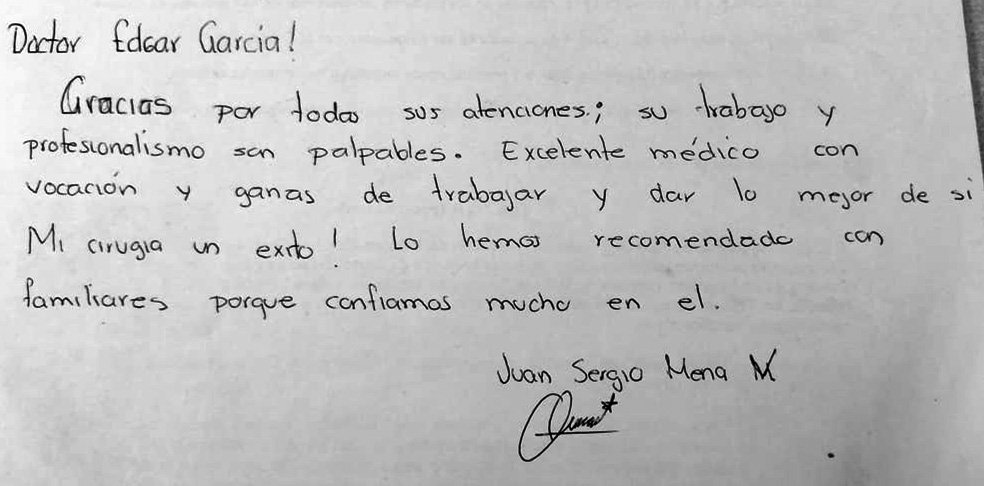 Doctor Edgar Garcia!
Gracias por todas sus atenciones; su trabajo y
profesionalismo son palpables. Excelente médico con
vocación y ganas de trabajar y dar lo mejor de si
Mi cirugia un exito! Lo hemos recomendado con
familiares porque confiamos mucho en el.
Juan Sergio Mena M